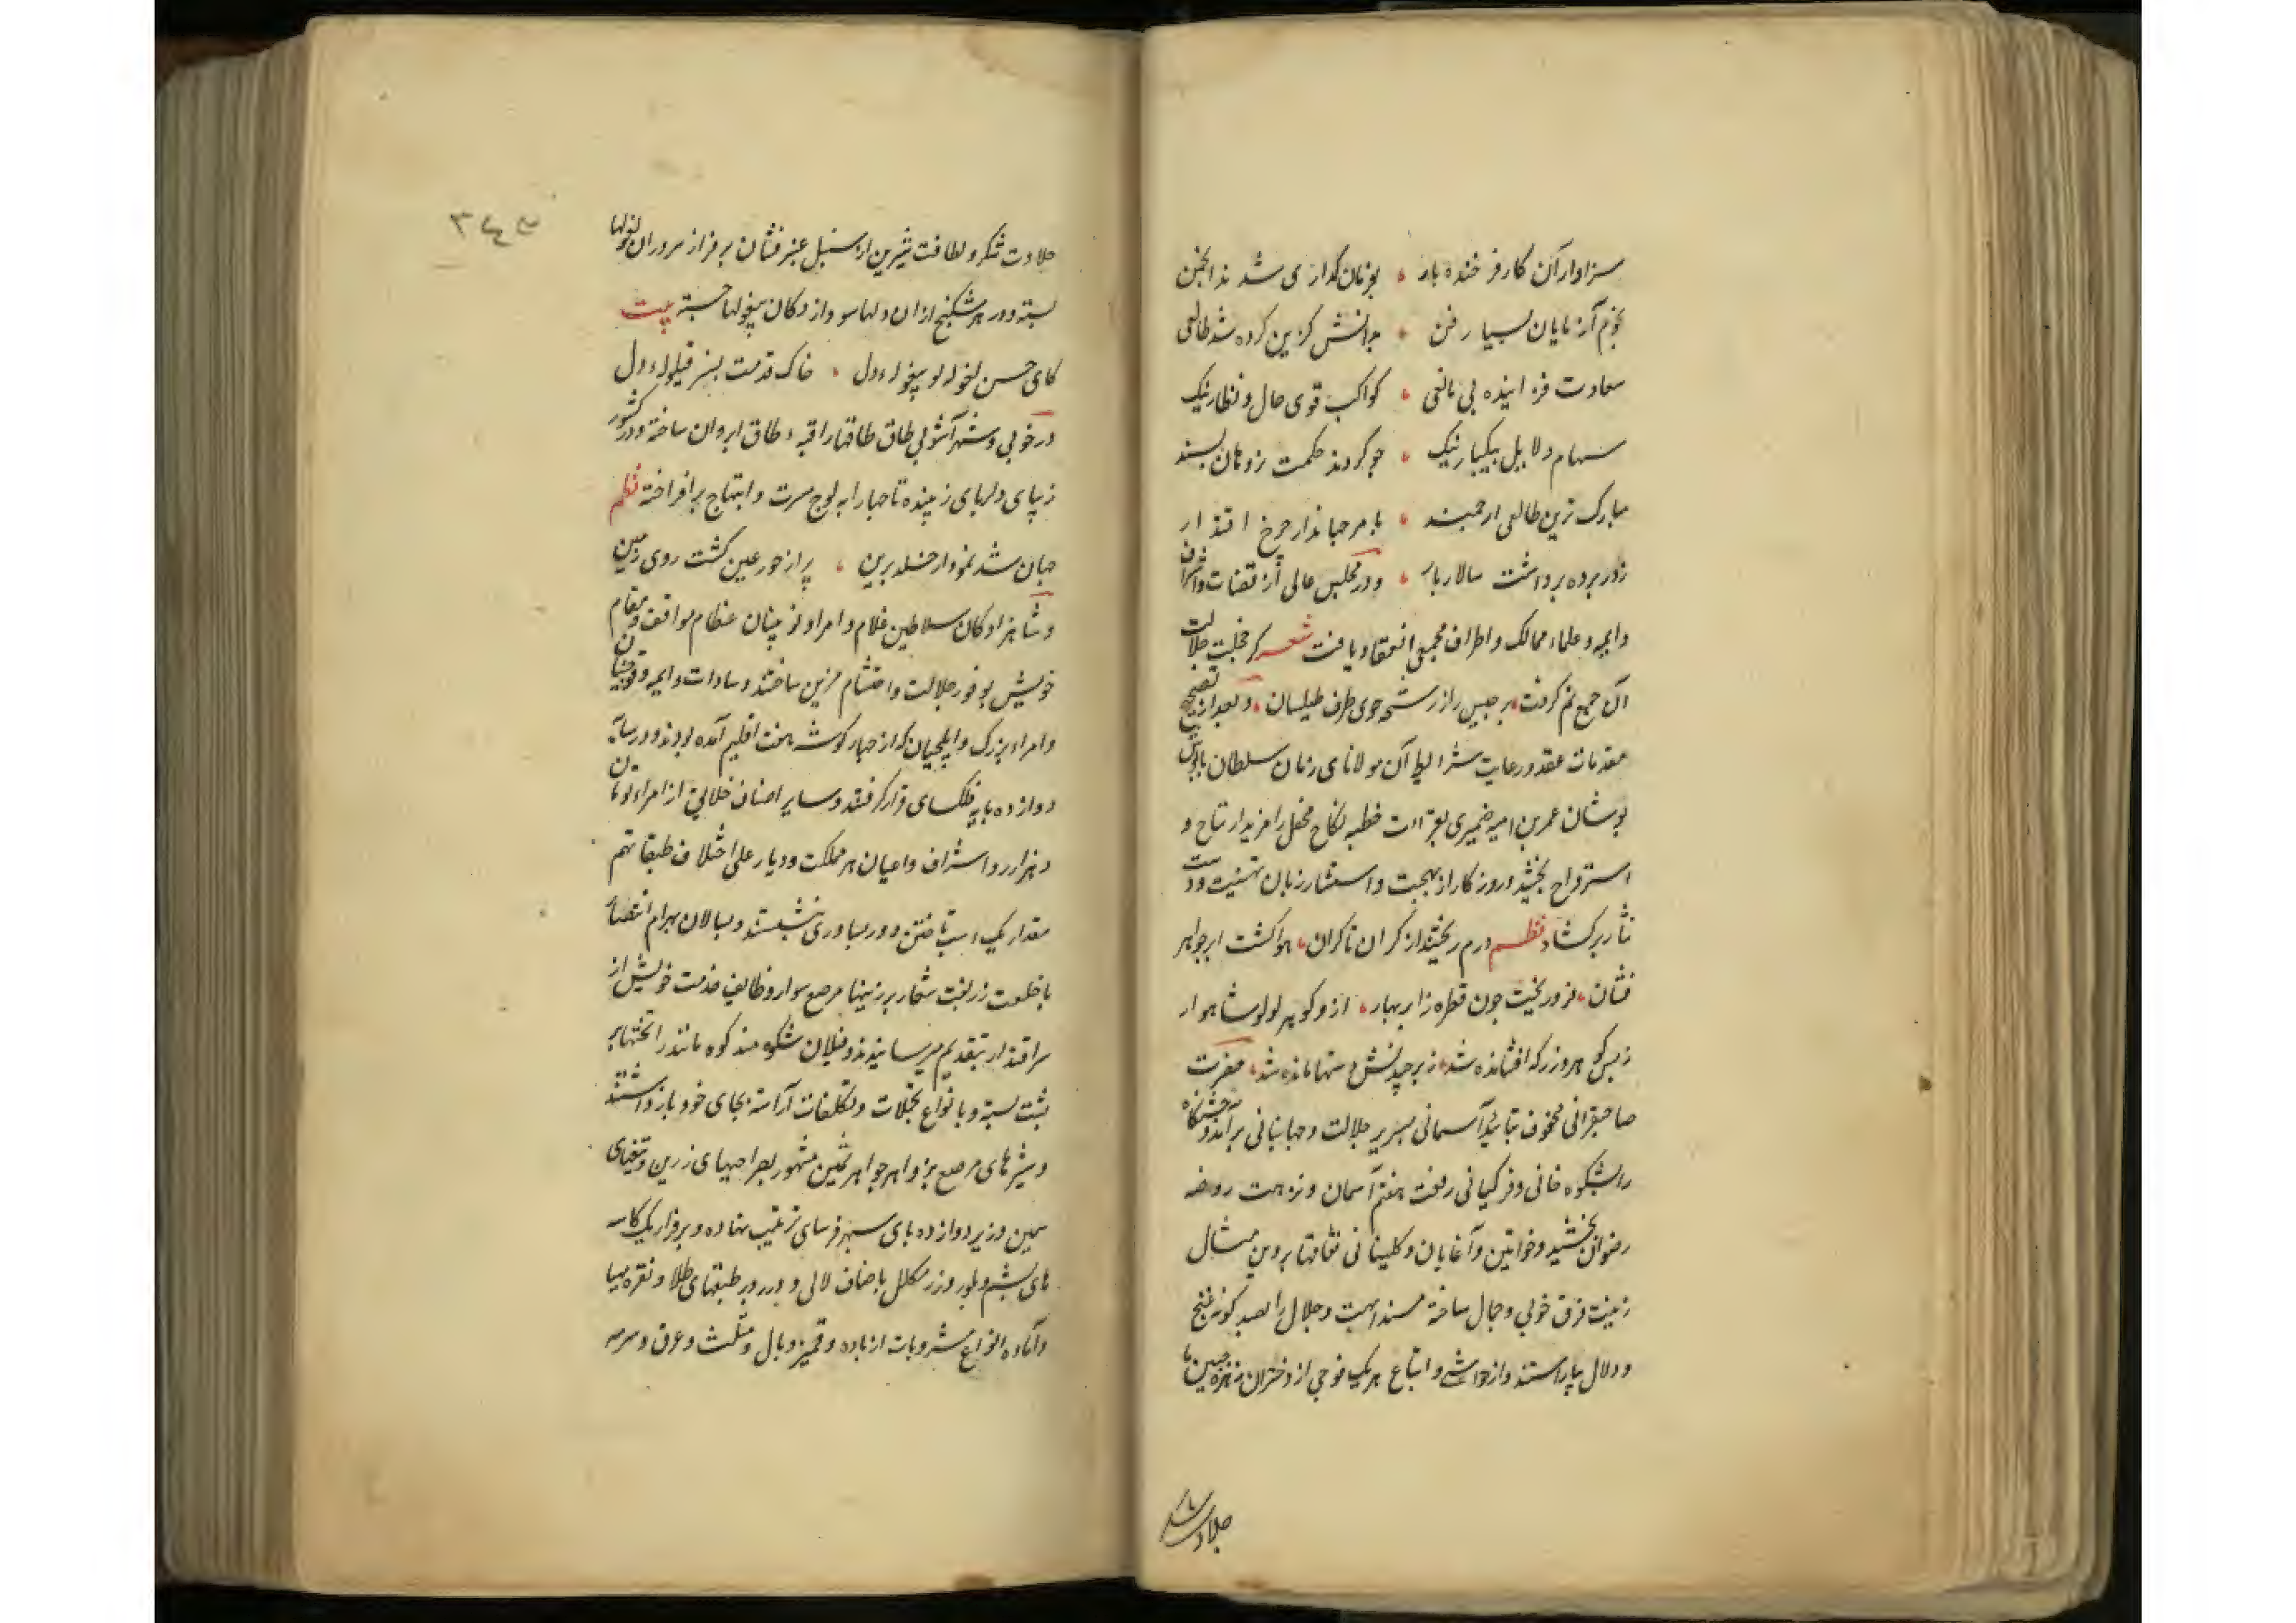 سزاوار آن کار فرخنده بار ، بورمان کداری شد ند انجمن
بجزم آزمایان بسیار فن ، بدانش کزین کرده شد طالعی
سعادت فزاینده بی مانعی ، کواکب قوی حال و نظار نیک
سهام دلایل بیکبار نیک ، چو کردند حکمت پسند
مبارک ترین طالعی ارجمند ، بامر جهاندار چرخ اقتدار
زدر پرده برداشت سالار بار ، و در مجلس عالی از قضات و اشراف
و ایمه و علماء ممالک و اطراف مجمعی انعقاد یافت شعر کز خجلت جلالت
آن جمع نم کرفت ، برجبیس را ز رشح خوی طرف طیلسان ، و بعد از تصحیح
مقدمات عقد و رعایت شرایط آن مولانای زمان سلطان
خطبه نکاح محفل را مزید ارتیاح و
استرواح بخشید و روزکار از بهجت و استبشار زبان تهنیت و دست
نثار برکشاد نظم درم ریختند از کران تا کران ، هوا کشت ابر جواهر
فشان ، فرو ریخت چون قطره ز ابر بهار ، زر و کوهر لولو شاهوار
ز بس کوهر و زر که افشانده شد ، ز برچیدنش دستها مانده شد ، حضرت
صاحبقرانی محفوف بتائید آسمانی بسریر جلالت و جهانبانی برآمد و جشنکاه
را بشکوه خانی و فر کیانی رفعت هفتم آسمان و نزهت روضه
رضوان بخشید و خواتین و آغایان و کلینانی نقابها پروین مثال
زینت فرق خوبی و جمال ساخته مسند ابهت و جلال را بصد کونه غنج
و دلال بیاراستند و از حواشی و اتباع هر یک فوجی از دختران زهره جبین با
حلاوت شکر
۳۴۵
حلاوت شکر و لطافت شیرین از سنبل عنبرفشان بر فراز سروران بغولها
بسته و در هر شکنج از ان دلها سودازدکان بیغولها جسته بیت
کای حسن بغوله دل ، خاک قدمت بسر قیلوله دل
در خوبی و شهرآشوبی طاق طاقها را قبه طاق ابروان ساخته و در کشور
زیبای دلربای زیبنده تاجها را به اوج مسرت و ابتهاج برافراخته نظم
جهان شد نمودار خلد برین ، پر از حور عین کشت روی زمین
و شاهزادکان سلاطین غلام و امرا و نوئینان عظام مواقف و مقام
خویش بوفور جلالت و احتشام مزین ساختند و سادات و ایمه و قوشیان
و امراء بزرک و ایلچیان که از چهار کوشه هفت اقلیم آمده بودند و در سایه
دوازده پایه فلکسای قرار کرفتند و سایر اصناف خلایق از امراء تومان
و هزاره و اشراف و اعیان هر مملکت و دیار علی اختلاف طبقاتهم
مقدار یک اسب تاختن دورتر بنشستند و یساولان بهرام انتقام
با خلعت زربفت شعار بر زینها مرصع سوار وظایف خدمت خویش از
سر اقتدار بتقدیم میرسانیدند و فیلان شکوهمند کوه مانند را تختها بر
پشت بسته و بانواع تجملات و تکلفات آراسته بجای خود بازداشتند
و شیرهای مرصع بزواهر جواهر ثمین مشهور بصراحیهای زرین و تنغیهای
سیمین و زیر دوازده پای سپهرفرسای ترتیب نهاده و بر فراز یک کاسه
های یشم و بلور و زر مکلل باصناف لالی و درر و بر طبقهای طلا و نقره مهیا
و آماده انواع مشروبات از باده و قمیز و بال و مثلث و عرق و سرمه